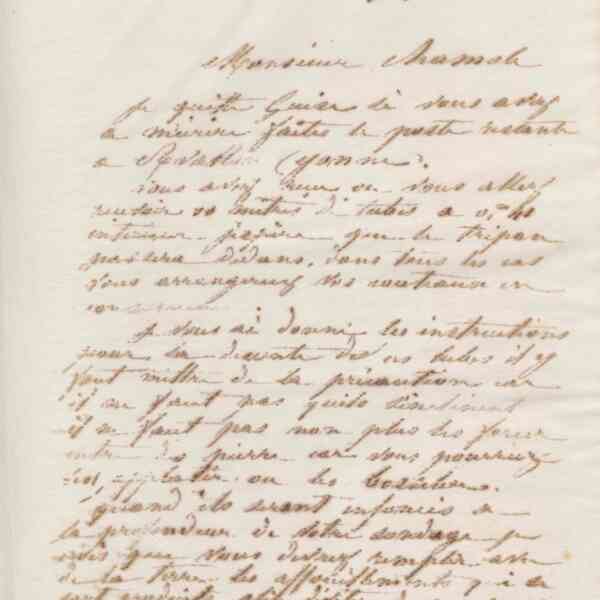 Monsieur
Je quitte si vous avez
a mécrire faites le poste restante
a (yonne).
vous avez reçu ou vous allez
recevoir 10 mètres de tubes a 0,
interieur jespère que le trépan
passera dedans, dans tous les cas
vous arrangerez vos couteaux en
je vous ai donné les instructions
pour la decente de ces tubes il y
faut mettre de la précaution car
il ne faut pas quils sinclinent
il ne faut pas non plus les forcer
entre des pierre car vous pourriez
les applatir ou les
quand ils seront enfoncés a
la profondeur de votre sondage je
crois que vous devrez remplir avec
de la terre les affouillements qui se
sont produits